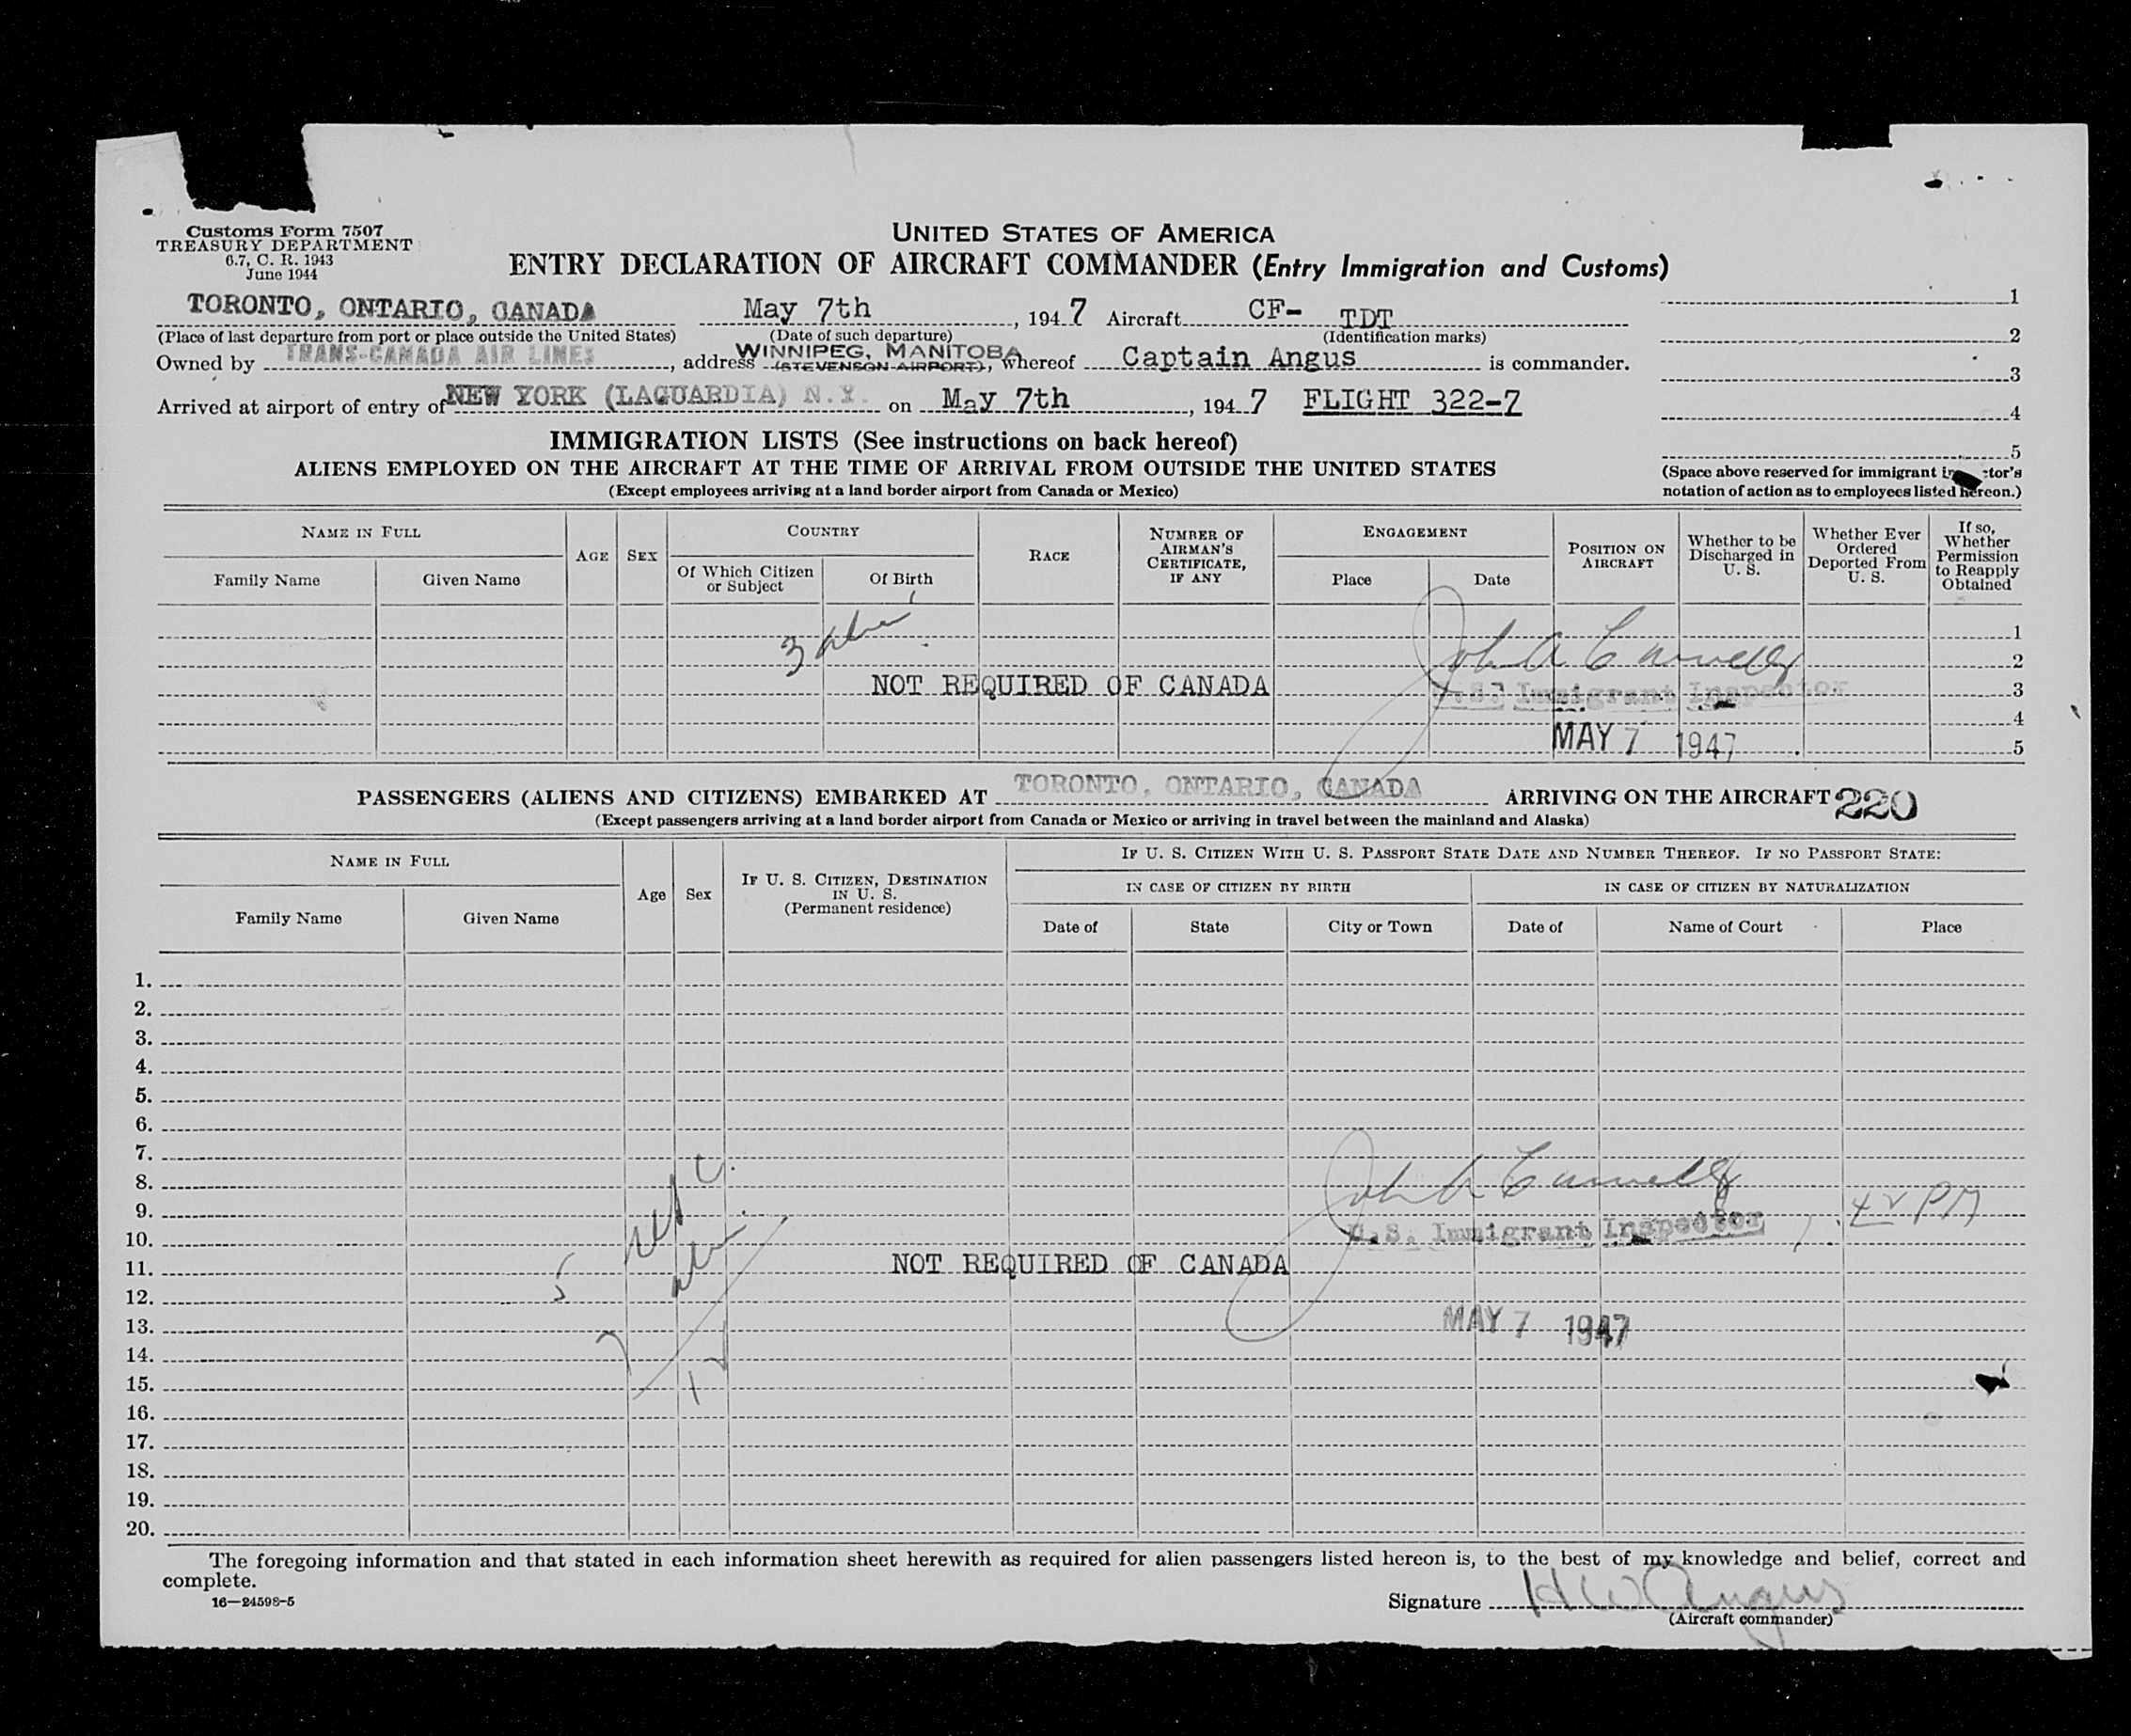 Customs Form 7507
TREASURY DEPARTMENT
6.7, C. R. 1943
June 1944
UNITED STATES OF AMERICA
ENTRY DECLARATION OF AIRCRAFT COMMANDER (Entry Immigration and Customs)
TORONTO, ONTARIO, CANADA May 7th, 1947 Aircraft CF- TDT
(Place of last departure from port or place outside the United States) (Date of such departure) (Identification marks)
Owned by TRANS-CANADA AIR LINES, address WINNIPEG, MANITOBA (STEVENSON AIRPORT), whereof Captain Angus is commander.
Arrived at airport of entry of NEW YORK (LAGUARDIA) N.Y. on May 7th, 1947 FLIGHT 322-7
1
2
3
4
5
(Space above reserved for immigrant
notation of action as to employees listed hereon.)
IMMIGRATION LISTS (See instructions on back hereof)
ALIENS EMPLOYED ON THE AIRCRAFT AT THE TIME OF ARRIVAL FROM OUTSIDE THE UNITED STATES
(Except employees arriving at a land border airport from Canada or Mexico)
NAME IN FULL
Family Name
Given Name
AGE
SEX
COUNTRY
Of Which Citizen or Subject
Of Birth
RACE
NUMBER OF AIRMAN'S CERTIFICATE, IF ANY
ENGAGEMENT
Place
Date
POSITION ON AIRCRAFT
Whether to be Discharged in U. S.
Whether Ever Ordered Deported From U. S.
If so, Whether Permission to Reapply Obtained
1
2
3
4
5
3
NOT REQUIRED OF CANADA
John A
U.S. Immigrant Inspector
MAY 7 1947
PASSENGERS (ALIENS AND CITIZENS) EMBARKED AT TORONTO, ONTARIO, CANADA ARRIVING ON THE AIRCRAFT 220
(Except passengers arriving at a land border airport from Canada or Mexico or arriving in travel between the mainland and Alaska)
NAME IN FULL
Family Name
Given Name
Age
Sex
IF U. S. CITIZEN, DESTINATION IN U. S. (Permanent residence)
IF U. S. CITIZEN WITH U. S. PASSPORT STATE DATE AND NUMBER THEREOF. IF NO PASSPORT STATE:
IN CASE OF CITIZEN BY BIRTH
Date of
State
City or Town
IN CASE OF CITIZEN BY NATURALIZATION
Date of
Name of Court
Place
1.
2.
3.
4.
5.
6.
7.
8.
9.
10.
11.
12.
13.
14.
15.
16.
17.
18.
19.
20.
5
7
12
John A
PM
U.S. Immigrant Inspector
NOT REQUIRED OF CANADA
MAY 7 1947
The foregoing information and that stated in each information sheet herewith as required for alien passengers listed hereon is, to the best of my knowledge and belief, correct and
complete.
16—24598-5
Signature H W Angus
(Aircraft commander)